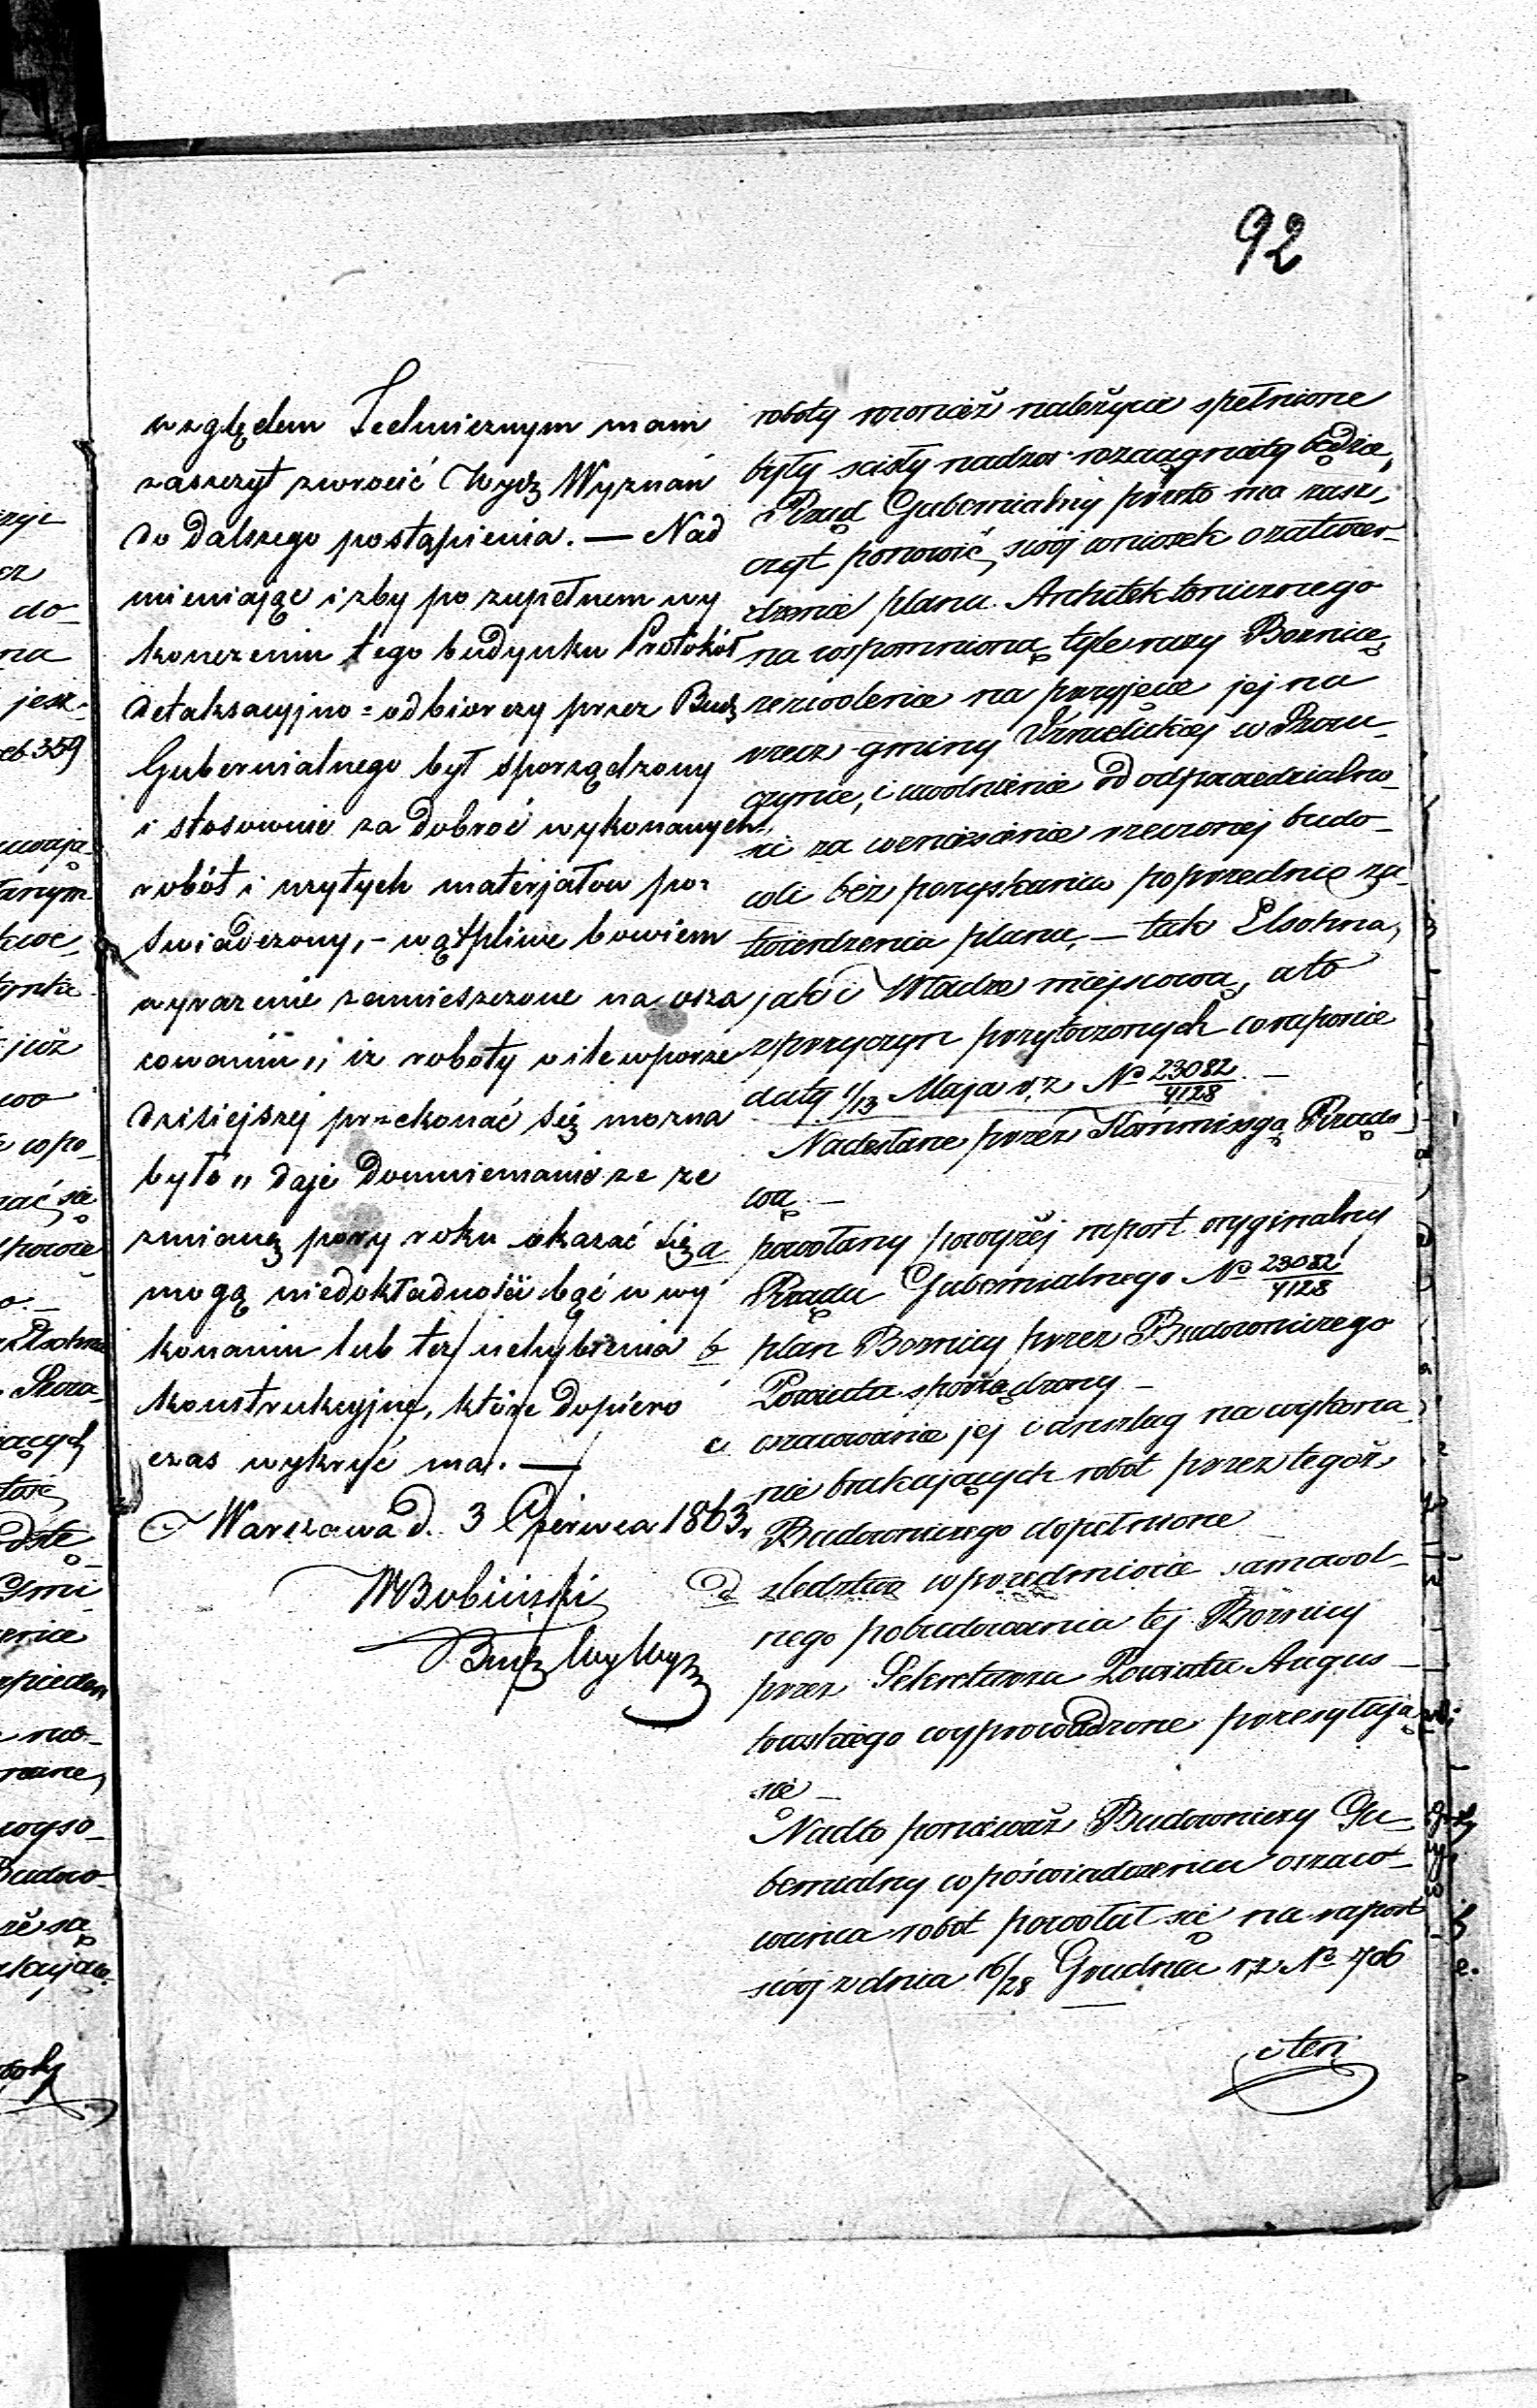 92
względem Technicznym mam
zaszczyt zwrócić Wydz Wyznań
do dalszego postąpienia. — Nad
mieniając iżby po zupełnem wy
kończeniu tego budynku Protokół
detaksacyjno = odbiorczy przez Bud
Gubernialnego był sporządzony
i stosownie za dobroć wykonanych
robót i użytych materjałów po=
świadczony, – wątpliwe bowiem
wyrażenie zamieszczone na osza
cowaniu „ iż roboty o ile w porze
dzisiejszej przekonać się można
było „ daje domniemanie że ze
zmianą pory roku okazać się
mogą niedokładności bąć w wy
konaniu lub też uchybienia
konstrukcyjne, które dopiero
czas wykryć ma. —
Warszawa d. 3 Czerwca 1863.
WBobiński
Bud
roboty również należycie spełnione
były scisły nadzór rozciągnięty będzie,
Rząd Gubernialny przeto ma zasz,
czyt ponowić swój wniosek o zatwier-
dzenie planu Architektonicznego
na wspomnioną tyle razy Boznicę,
zezwolenie na przyjęcie jej na
rzecz gminy Izraelickiej w Szczu-
czynie, i uwolnienie od odpowiedzialno-
ści za wzniesienie rzeczonej budo-
wli bez pozyskania poprzednio za-
twierdzenia planu, — tak Elsohna,
jak i Władze miejscową, a to
z przyczyn przytoczonych w raporcie
daty 1/13 Maja r. z. No 23082/4128 —
Nadesłane przez Kommissyą Rządo
wą —
a powołany powyżej raport oryginalny
Rządu Gubernialnego No 23082/4128
b plan Boznicy przez Budowniczego
Powiatu sporządzony —
c oszacowanie jej i anszlag na wykona
nie brakujących robót przez tegoż
Budowniczego dopełnione
d śledztwo w przedmiocie samowol-
nego pobudowania tej Bożnicy
przez Sekretarza Powiatu Augus-
towskiego wyprowadzone przesyłają
się —
Nadto ponieważ Budowniczy Gu-
bernialny w poświadczeniu oszaco-
wania robót powołał się na raport
swój z dnia 16/28 Grudnia r. z. No 706
i ten